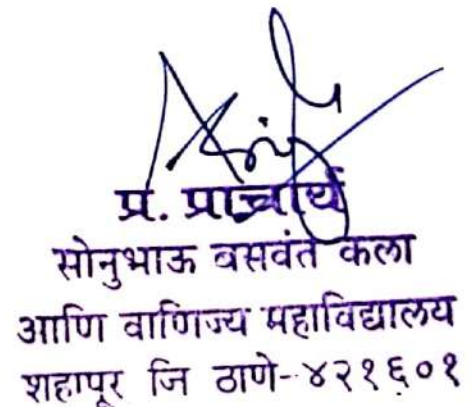 प्र. प्राचार्य
सोनुभाऊ बसवंत कला
आणि वाणिज्य महाविद्यालय
शहापूर जि ठाणे-४२१६०१